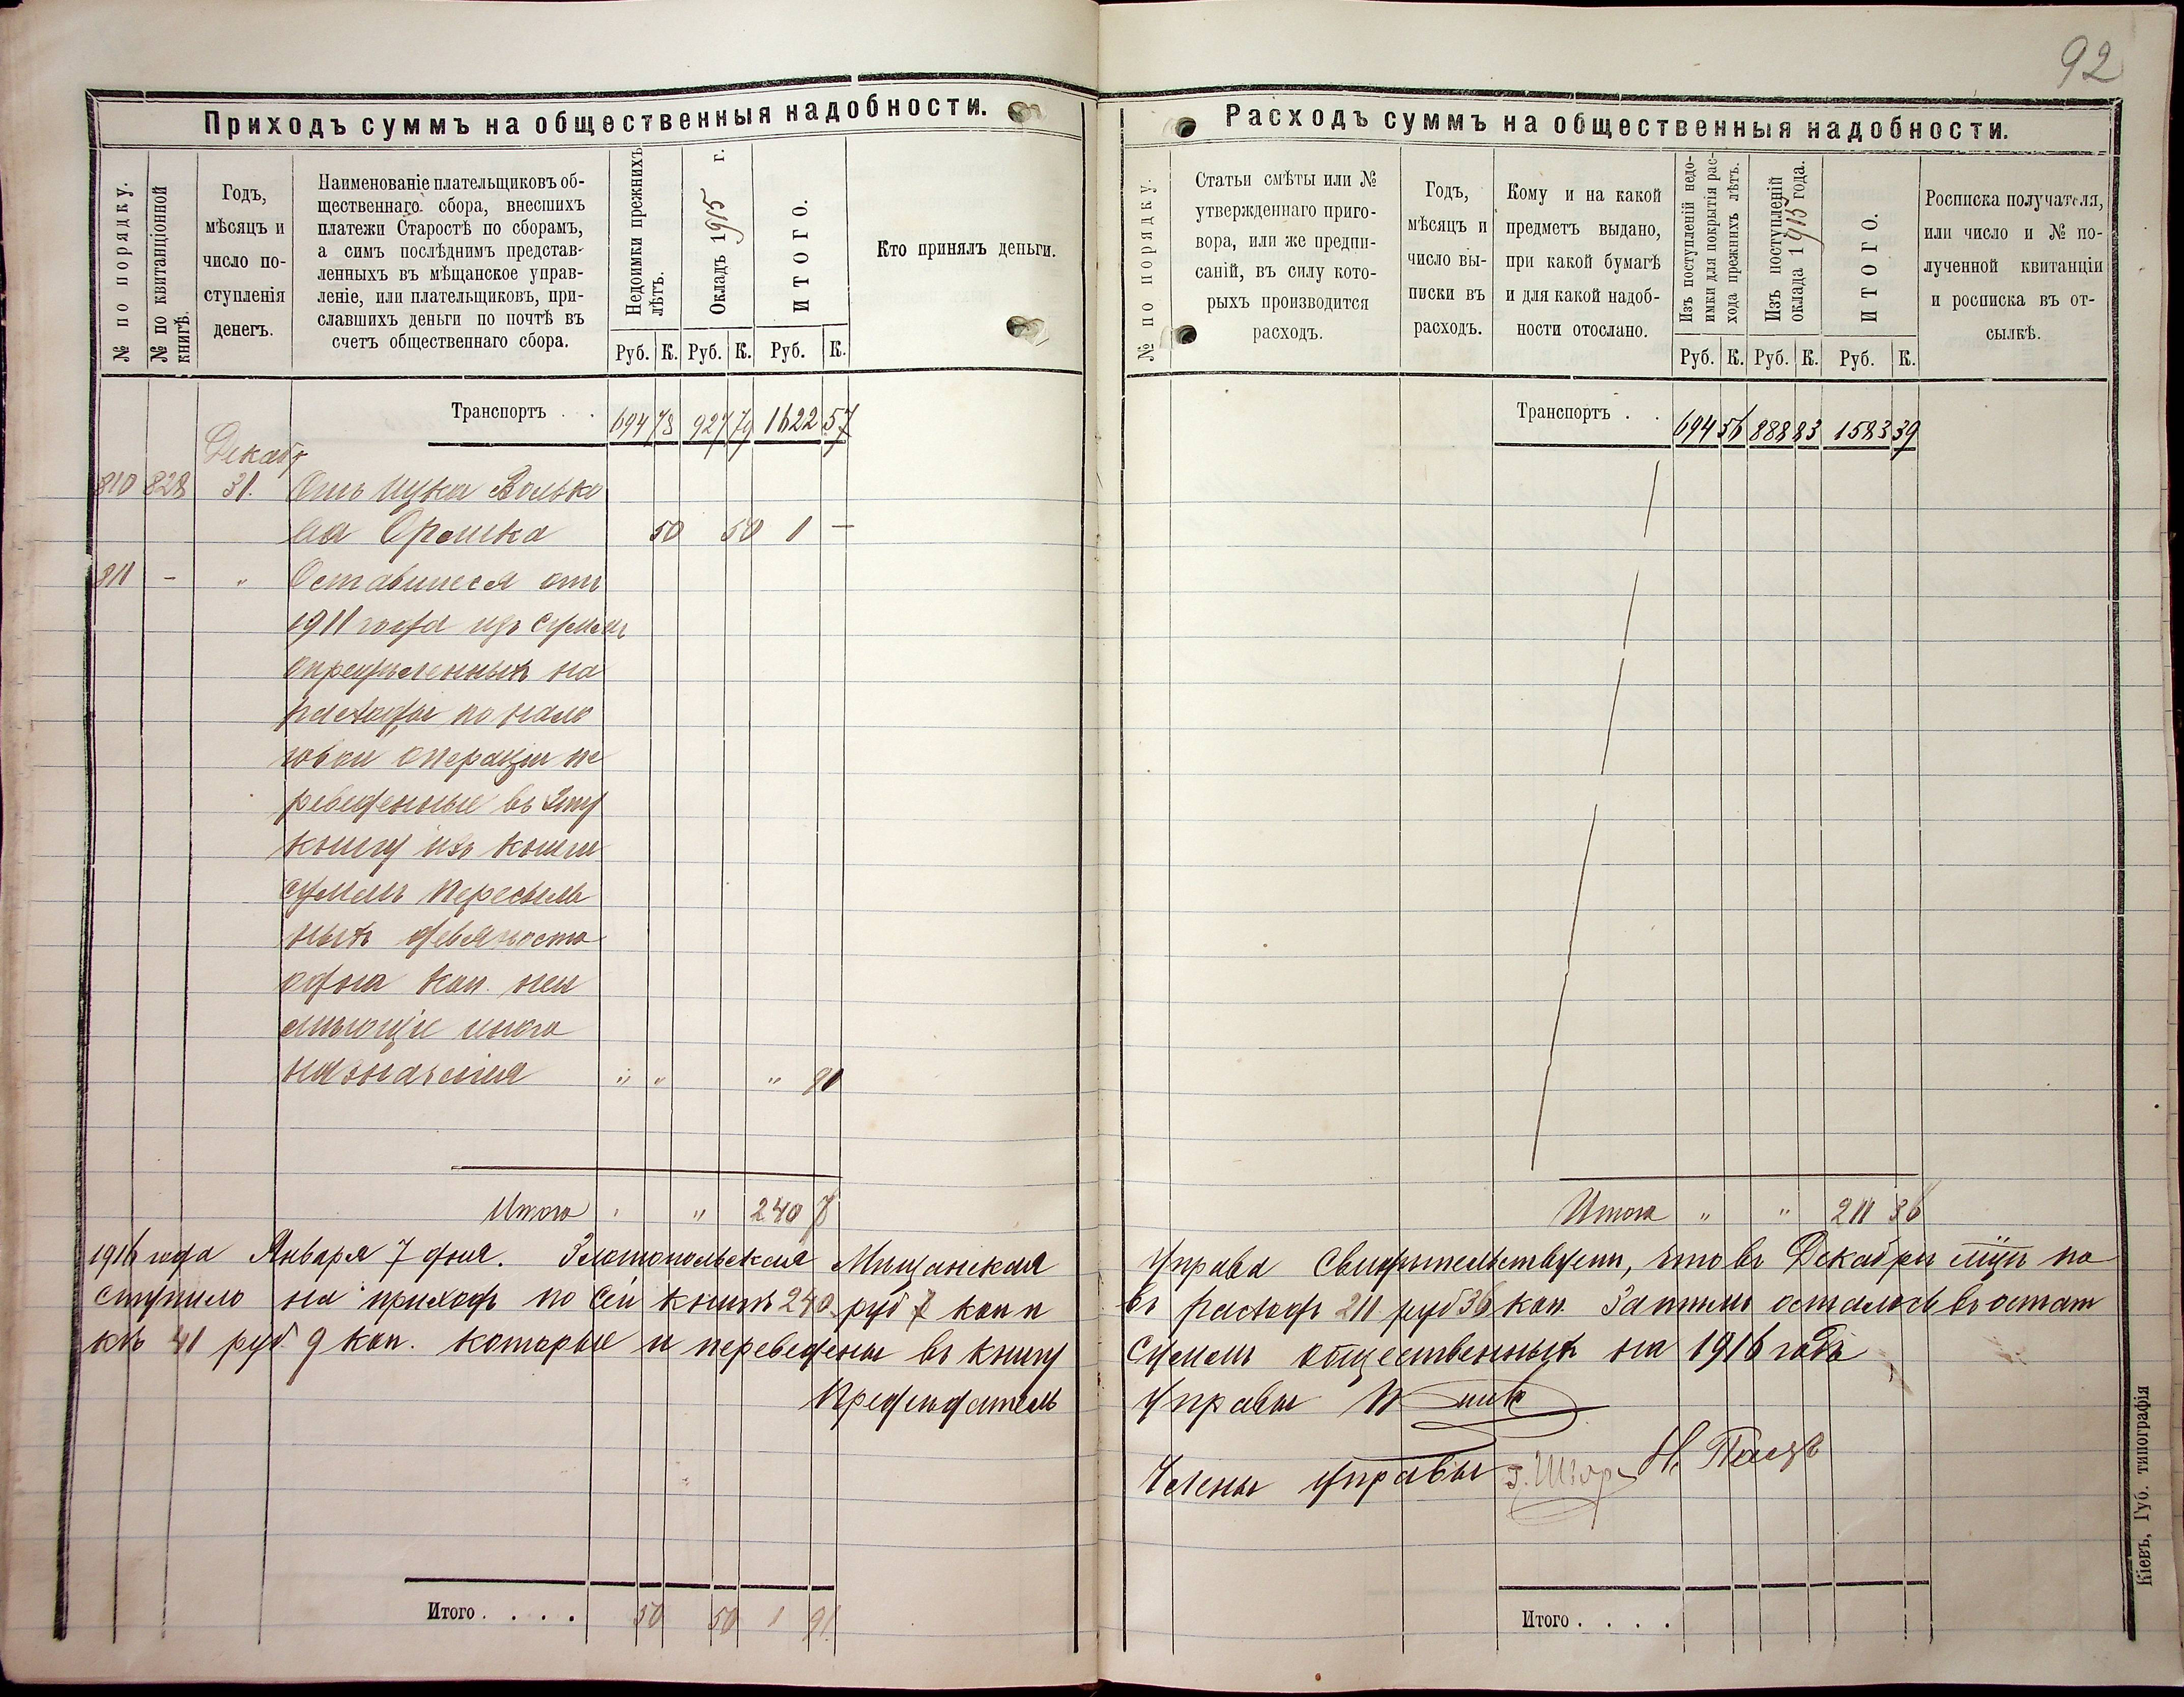 92
Приходъ суммъ на общественныя надобности.
№ по порядку.
№ по квитанціонной книгѣ.
Годъ,
мѣсяцъ и
число по-
ступленія
денегъ.
Наименованіе плательщиковъ об-
щественнаго сбора, внесшихъ
платежи Старостѣ по сборамъ,
а симъ послѣднимъ представ-
ленныхъ въ мѣщанское управ-
леніе, или плательщиковъ, при-
славшихъ деньги по почтѣ въ
счетъ общественнаго сбора.
Недоимки прежнихъ лѣтъ.
Окладъ 1915 г.
ИТОГО.
Кто принялъ деньги.
Руб. К. Руб. К. Руб. К.
Транспортъ . . 694 78 927 79 1622 57
Декабр
810 828 31. Отъ Ицка Волько
ва 50 50 1 —
811 - " Оставшееся отъ
1911 года изъ суммъ
опредѣленныхъ на
расходы по нало
говой операціи пе
реведенные въ эту
книгу изъ книги
суммъ пересыль
ныхъ девяносто
одна коп. не и
мѣющіе иного
назначенія " " " 91
Итого " " 240 7
1916 года Января 7 дня. Златопольская Мѣщанская
ступило на приходъ по сей книгѣ 240 руб 7 коп и
кѣ 41 руб. 9 коп. которые и переведены въ книгу
Предсѣдатель
Итого . . . . 50 50 1 91
Расходъ суммъ на общественныя надобности.
№ по порядку.
Статьи смѣты или №
утвержденнаго приго-
вора, или же предпи-
саній, въ силу кото-
рыхъ производится
расходъ.
Годъ,
мѣсяцъ и
число вы-
писки въ
расходъ.
Кому и на какой
предметъ выдано,
при какой бумагѣ
и для какой надоб-
ности отослано.
Изъ поступленій недо-
имки для покрытія рас-
хода прежнихъ лѣтъ.
Изъ поступленій
оклада 1915 года.
ИТОГО.
Росписка получателя,
или число и № по-
лученной квитанціи
и росписка въ от-
сылкѣ.
Руб. К. Руб. К. Руб. К.
Транспортъ . . 694 56 888 83 1583 39
Итого " " 211 36
Управа свидѣтельствуетъ, что въ Декабрѣ мцѣ по
въ расходъ 211 руб 36 коп. Затѣмъ осталось въ остат
суммъ общественныхъ на 1916 годъ
Управы
Члены Управы
Итого . . . .
Кіевъ, Губ. типографія